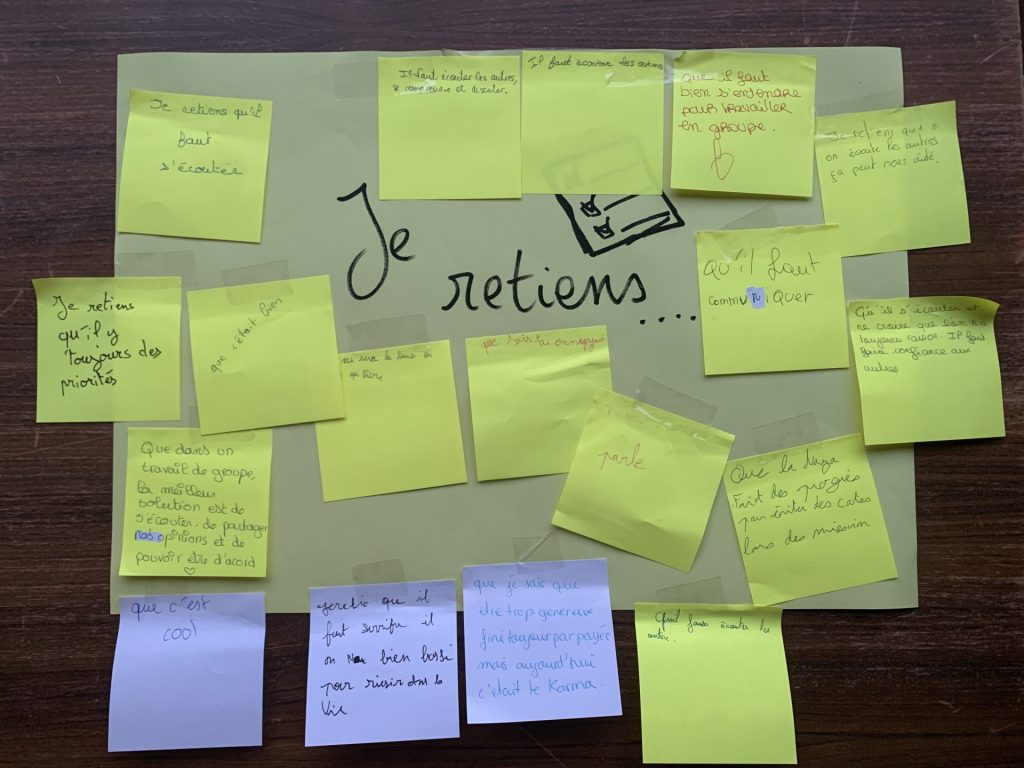 Je retiens qu'il
faut
s'écouter
Il faut écouter les autres,
se comprendre et discuter.
Il faut écouter les autres
que il faut
bien s'entendre
pour travailler
en groupe.
Je retiens que si
on écoute les autres
ça peut nous aidé.
Je
retiens....
Qu'il faut
communiquer
Je retiens
qu'il y
toujours des
priorités
que c'était bien
sur la lune on
faire
que
parle
Qu'il s'écouter et
ne croire que l'on a
toujours raison. Il faut
faire confiance aux
autres
Que dans un
travail de groupe,
la meilleur
solution est de
s'écouter, de partager
nos opinions et de
pouvoir être d'acord
Que la Naza
Fait des progrès
pour éviter des catas
lors des mission
que c'est
cool
que il
faut il
on bien
pour dans la
Vie
que je sais que
être trop genereux
fini toujour par payer
mais aujourd'hui
c'était le Karma.
écouter les
autre.